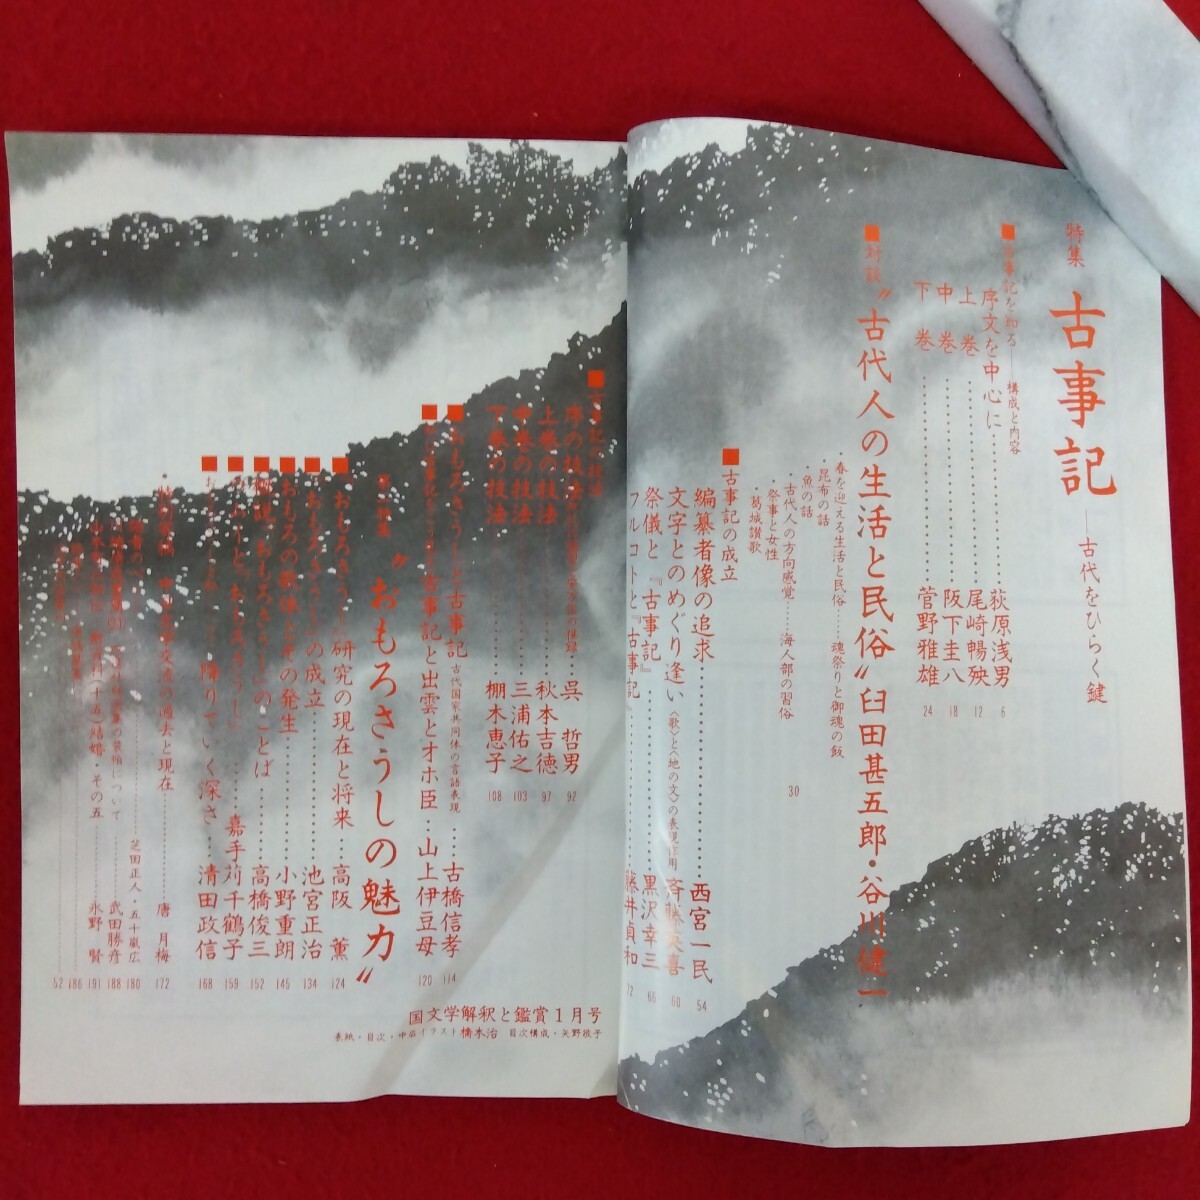 特集 古事記――古代をひらく鍵
■古事記を知る――構成と内容
序文を中心に……荻原浅男 6
上巻……尾崎暢殃 12
中巻……阪下圭八 18
下巻……菅野雅雄 24
■対談〝古代人の生活と民俗〟臼田甚五郎・谷川健一
・春を迎える生活と民俗……魂祭りと御魂の飯
昆布の話
・魚の話
・古代人の方向感覚……海人部の習俗
・祭事と女性
・葛城讃歌
30
■古事記の成立
編纂者像の追求……西宮一民 54
文字とのめぐり逢い〈歌〉と〈地の文〉の表現作用 60
祭儀と『古事記』……黒沢幸三 66
フルコトと『古事記』……藤井貞和 72
■古事記の技法
序の技法……呉哲男 92
上巻の技法……秋本吉徳 97
中巻の技法……三浦佑之 103
下巻の技法……棚木恵子 108
■おもろさうしと古事記 古代国家共同体の言語表現……古橋信孝 114
古事記と出雲とオホ臣……山上伊豆母 120
〝おもろさうしの魅力〟
■『おもろさうし』研究の現在と将来……高阪薫 124
■『おもろさうし』の成立……池宮正治 134
■おもろの歌体とその発生……小野重朗 145
『おもろさうし』のことば……高橋俊三 152
嘉手苅千鶴子 159
降りていく深さ……清田政信 168
交流の過去と現在……唐月梅 172
芝田正人・五十嵐広 180
武田勝彦 188
結婚・その五……永野賢 191
186
52
国文学解釈と鑑賞1月号
表紙・目次・中扉イラスト橋本治 目次構成・矢野徳子